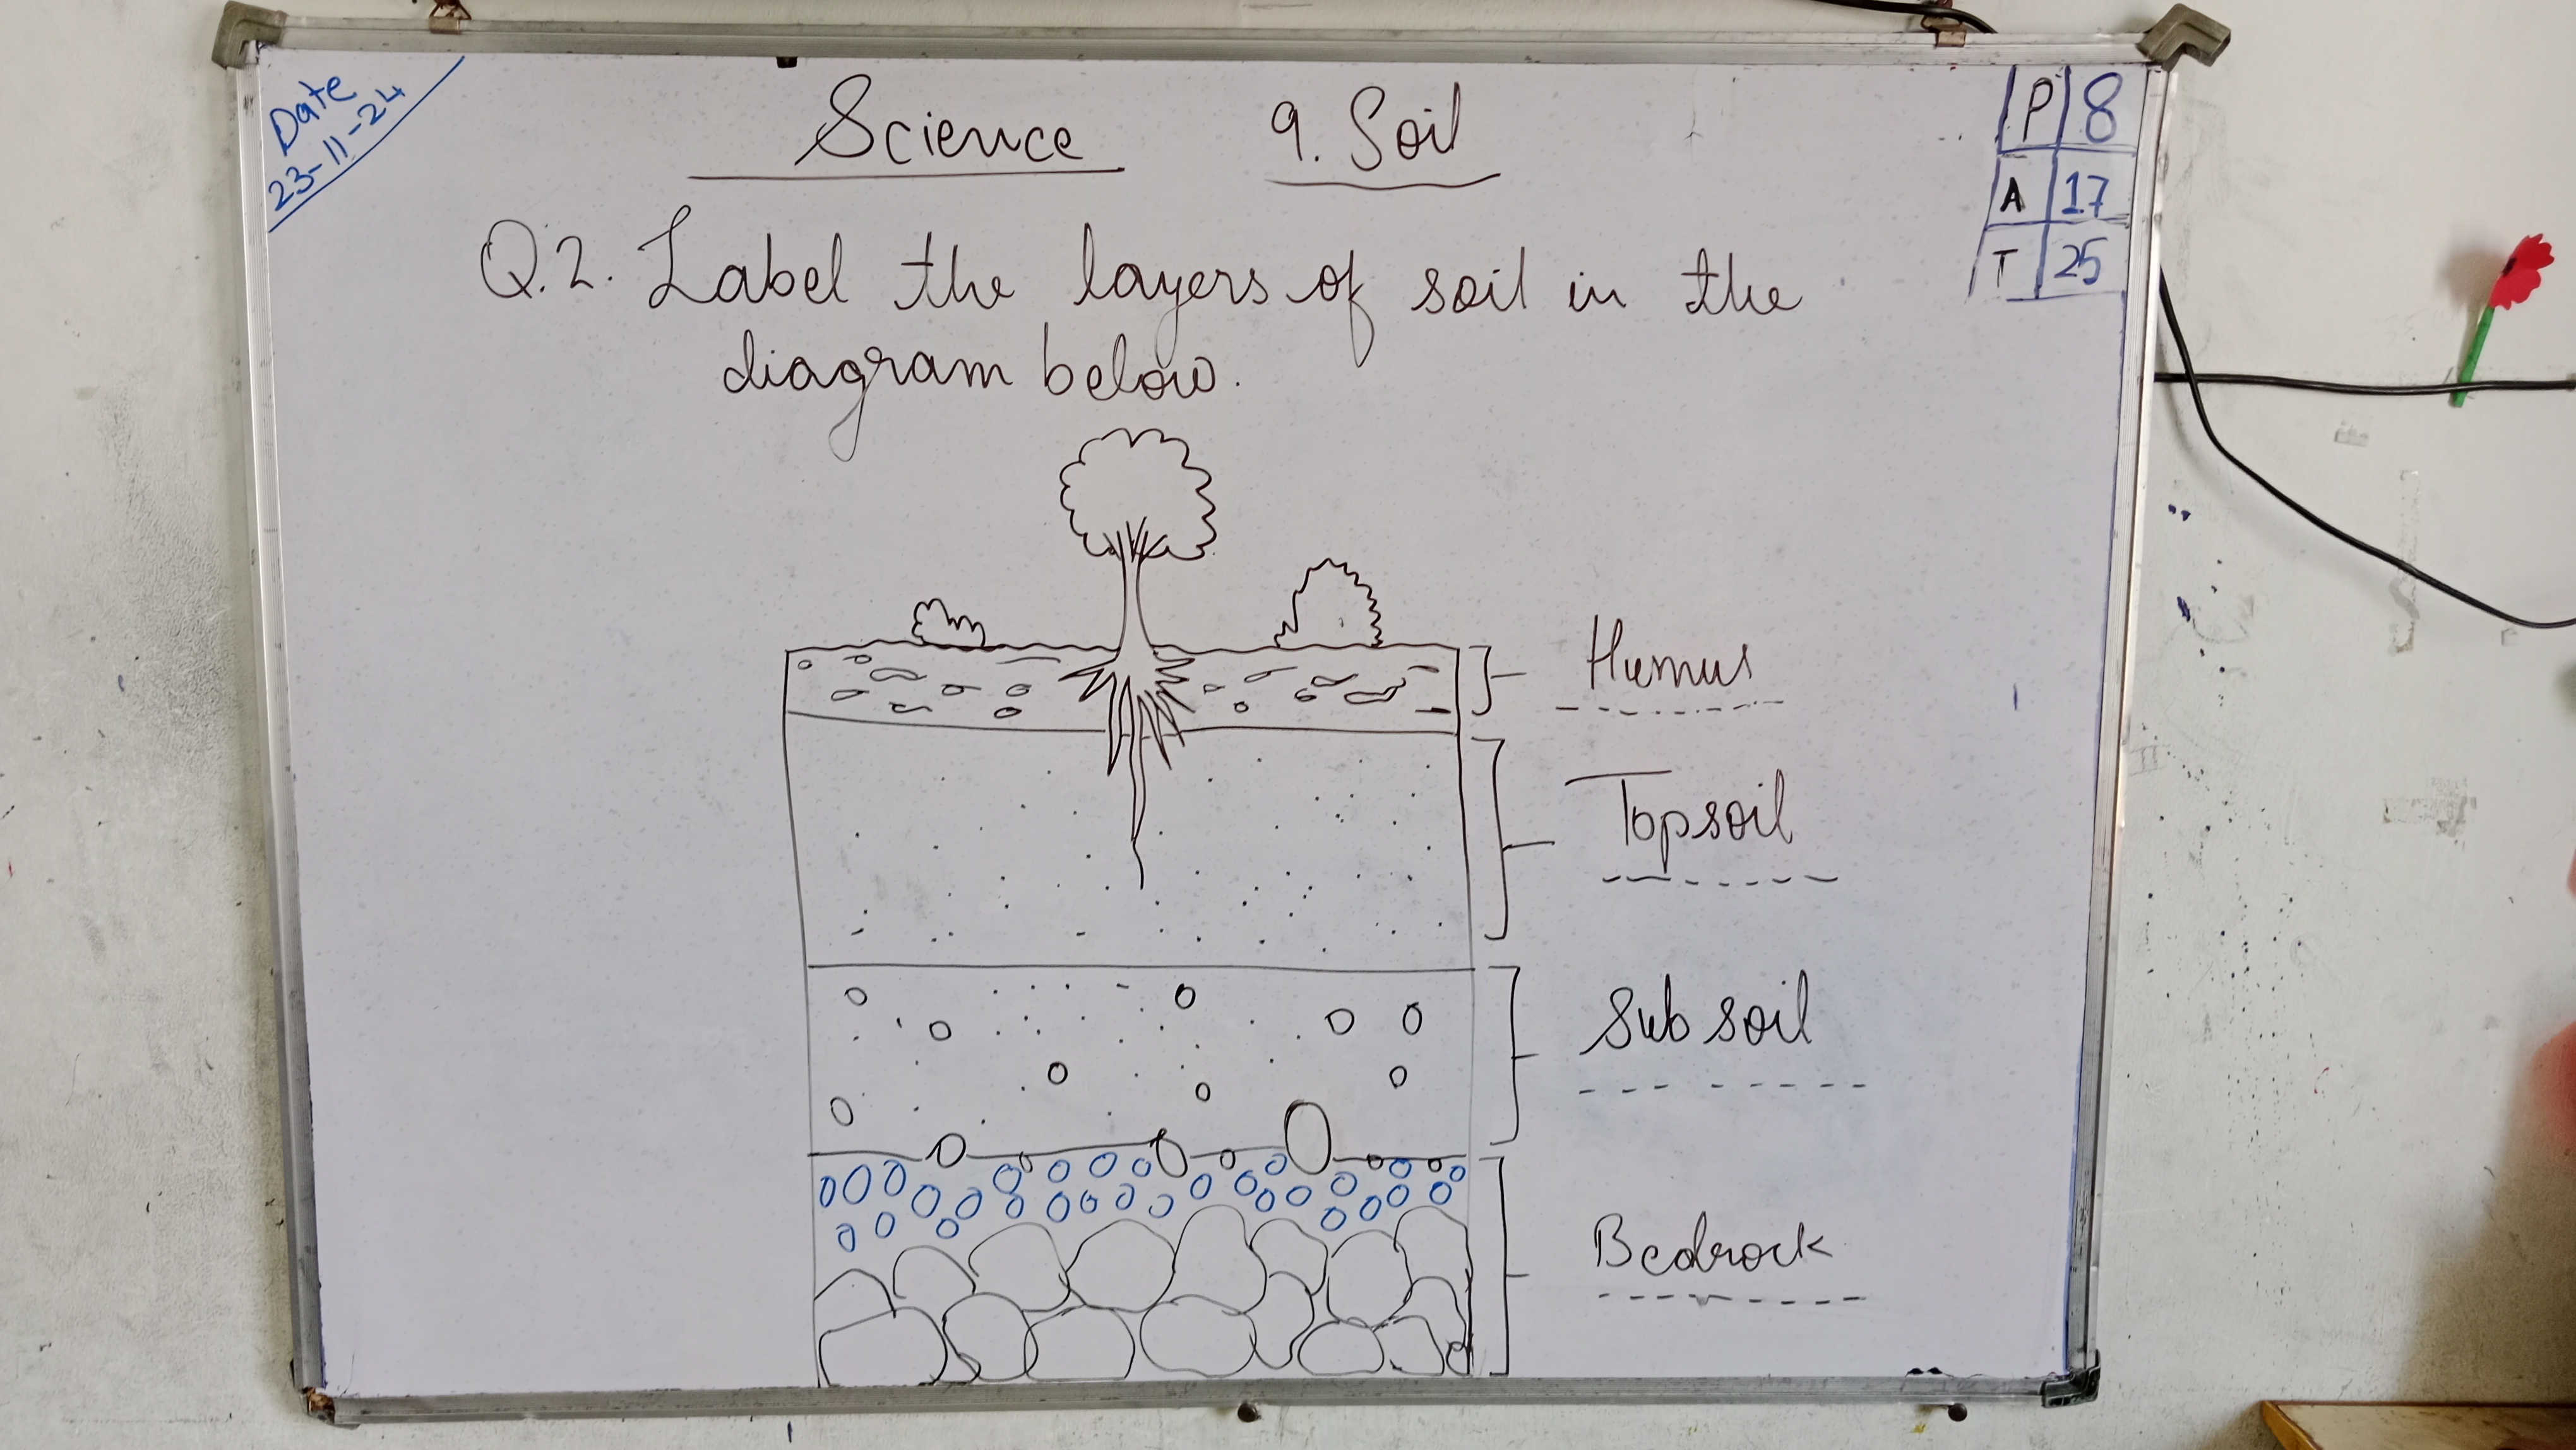 Date
23-11-24
Science 9. Soil
P 8
A 17
T 25
Q.2. Label the layers of soil in the
diagram below.
Humus
Topsoil
Sub soil
Bedrock